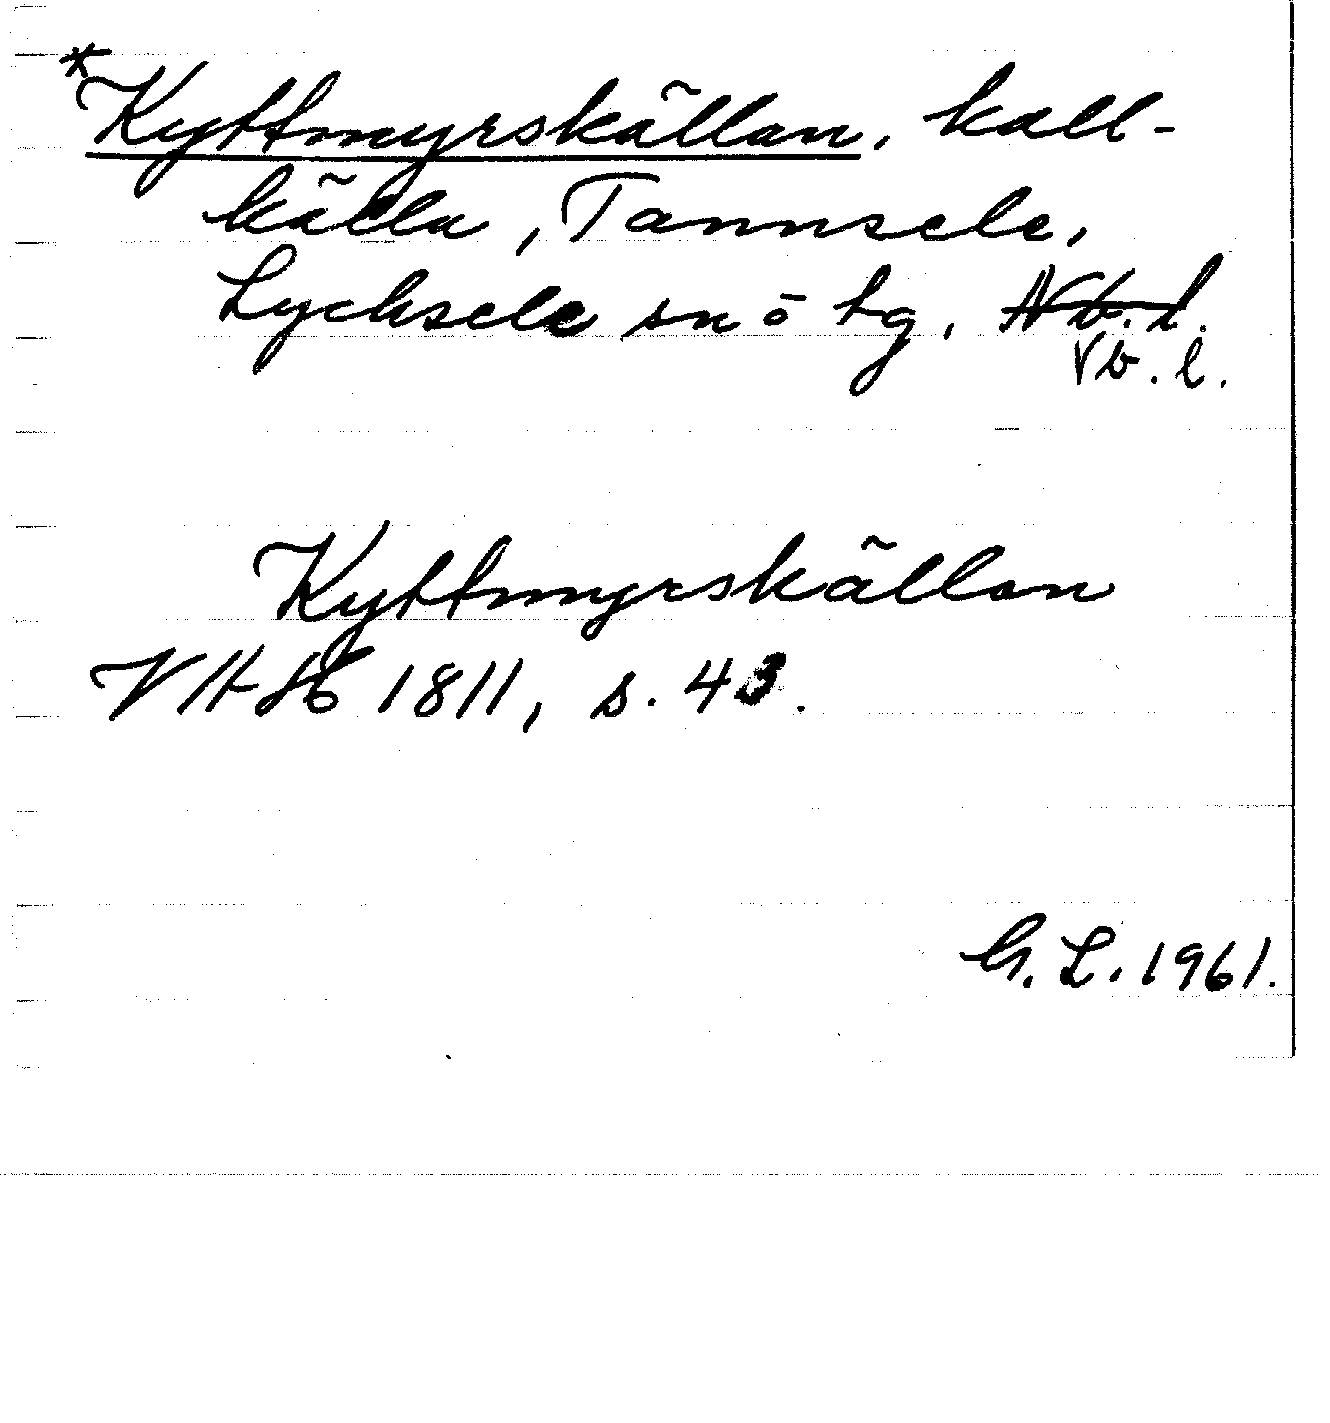 *Kyttmyrskällan, kall-
källa, Tannsele,
Lycksele sn o tg, Nb. l.
Vb. l.
Kyttmyrskällan
1811, s. 43.
G. L. 1961.